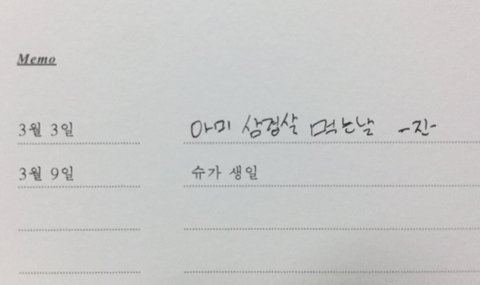 Memo
3월 3일 아미 삼겹살 먹는날 -진-
3월 9일 슈가 생일